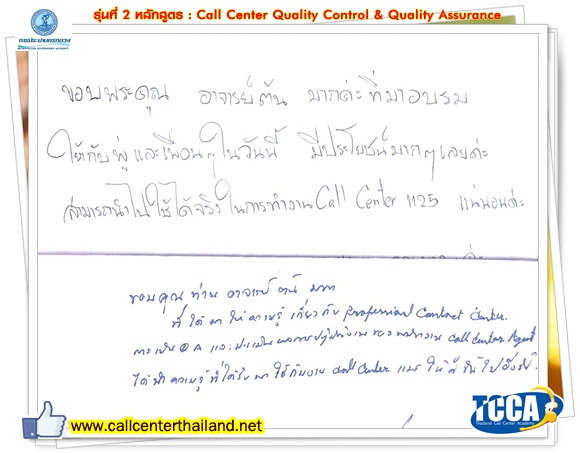 รุ่นที่ 2 หลักสูตร : Call Center Quality Control & Quality Assurance
การประปานครหลวง
ขอบพระคุณ อาจารย์ต้น มากค่ะที่มาอบรม
ให้กับพี่และเพื่อนๆในวันนี้ มีประโยชน์มากๆเลยค่ะ
สามารถนำไปใช้ได้จริงในการทำงาน Call Center 1125 แน่นอนค่ะ
ขอบคุณ ท่าน อาจารย์ มาก
ที่ได้มาให้ความรู้ เกี่ยวกับ Professional Contact Center.
การเป็น QA และประเมินผลการปฏิบัติงานของพนักงาน Call Center Agent
ได้นำความรู้ที่ได้รับมาใช้กับงาน Call Center
www.callcenterthailand.net
TCCA
Thailand Call Center Academy